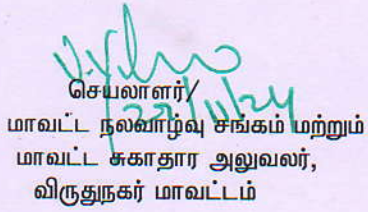 செயலாளர்/
22/11/24
மாவட்ட நலவாழ்வு சங்கம் மற்றும்
மாவட்ட சுகாதார அலுவலர்,
விருதுநகர் மாவட்டம்